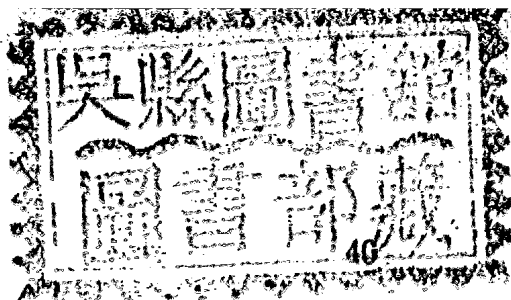 吳縣圖書館
圖書部藏
40